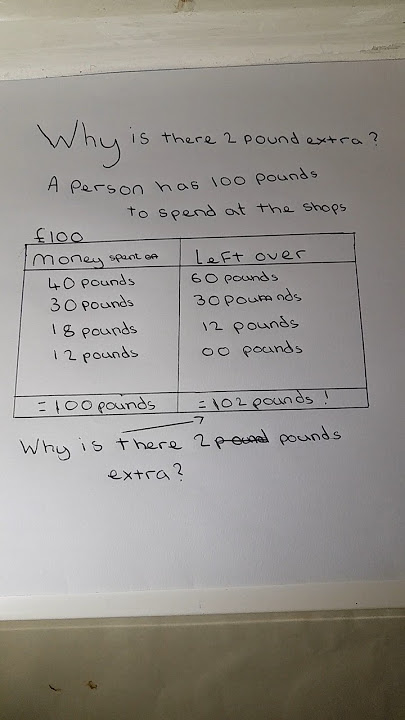 Why is there 2 pound extra?
A Person has 100 pounds
to spend at the shops
£100
Money spent on Left over
40 pounds 60 pounds
30 pounds 30 pounds
18 pounds 12 pounds
12 pounds 00 pounds
= 100 pounds = 102 pounds !
Why is there 2 pound pounds
extra?